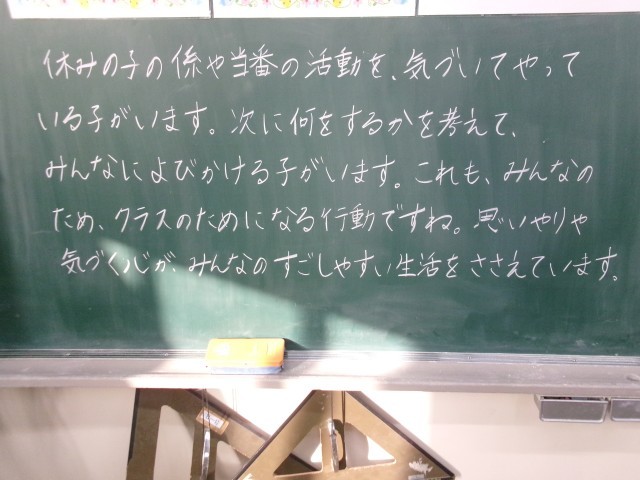 休みの子の係や当番の活動を、気づいてやって
いる子がいます。次に何をするかを考えて、
みんなによびかける子がいます。これも、みんなの
ため、クラスのためになる行動ですね。思いやりや
気づく心が、みんなのすごしやすい生活をささえています。